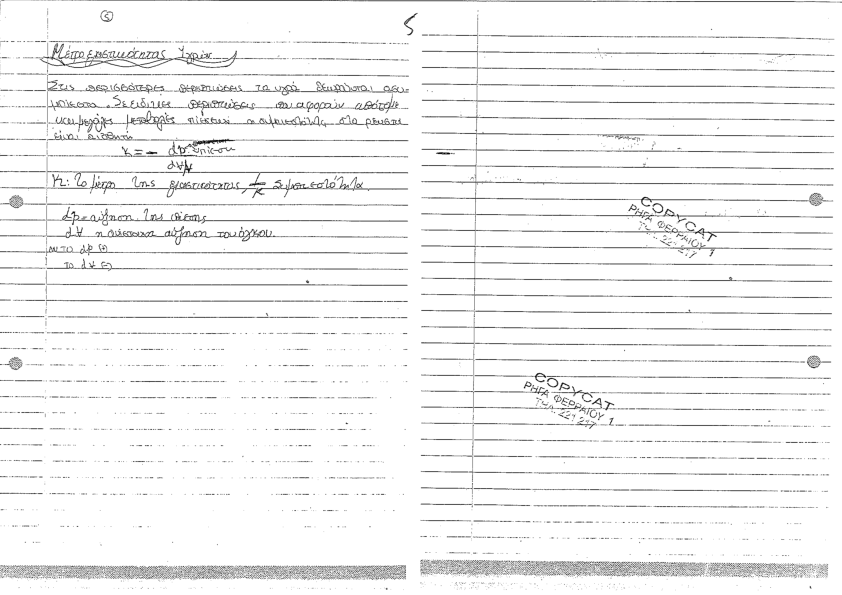 5
5
Μέτρο Ελαστικότητας Υγρών
Στις περισσότερες περιπτώσεις τα υγρά θεωρούνται ασυ-
μπίεστα. Σε ειδικές περιπτώσεις που αφορούν απότομες
και μεγάλες μεταβολές πιέσεων η συμπιεστότητα στα ρευστά
είναι αισθητή
K = - dp
dV/V
K: Το μέτρο της ελαστικότητας, 1/K Συμπιεστότητα.
dp = αύξηση της πίεσης
dV η αντίστοιχη αύξηση του όγκου.
με το dp (+)
το dV (-)
COPYCAT
ΡΗΓΑ ΦΕΡΡΑΙΟΥ 1
ΤΗΛ. 221 217
COPYCAT
ΡΗΓΑ ΦΕΡΡΑΙΟΥ 1
ΤΗΛ. 221 217